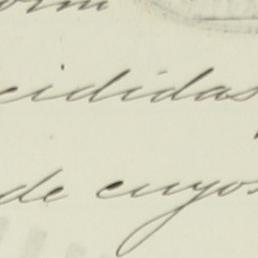 orm
cididas
de cuyos